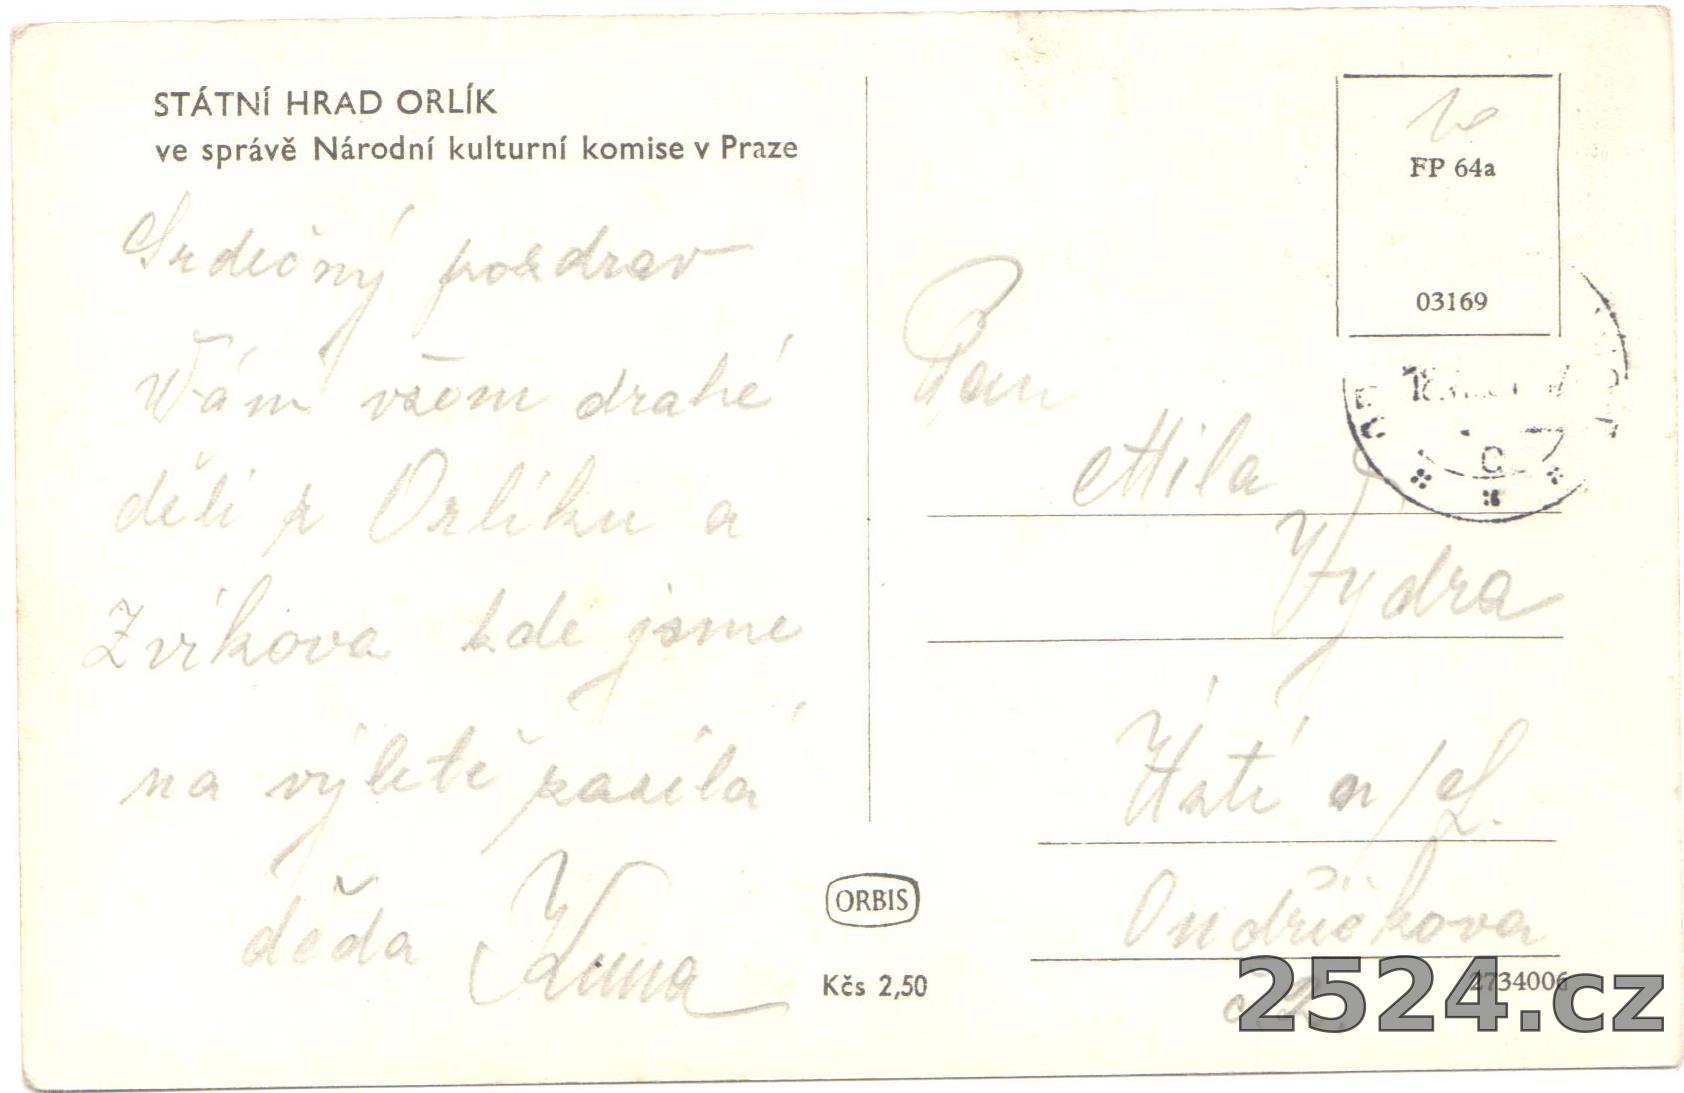 STÁTNÍ HRAD ORLÍK
ve správě Národní kulturní komise v Praze
Srdečný pozdrav
Vám všem drahé
děti z Orlíku a
Zvíkova kde jsme
na výletě zasílá
děda Kuna
ORBIS
Kčs 2,50
FP 64a
03169
Pan
Mila
Vydra
Ústí n/L.
Ondříčkova
2734006
2524.cz